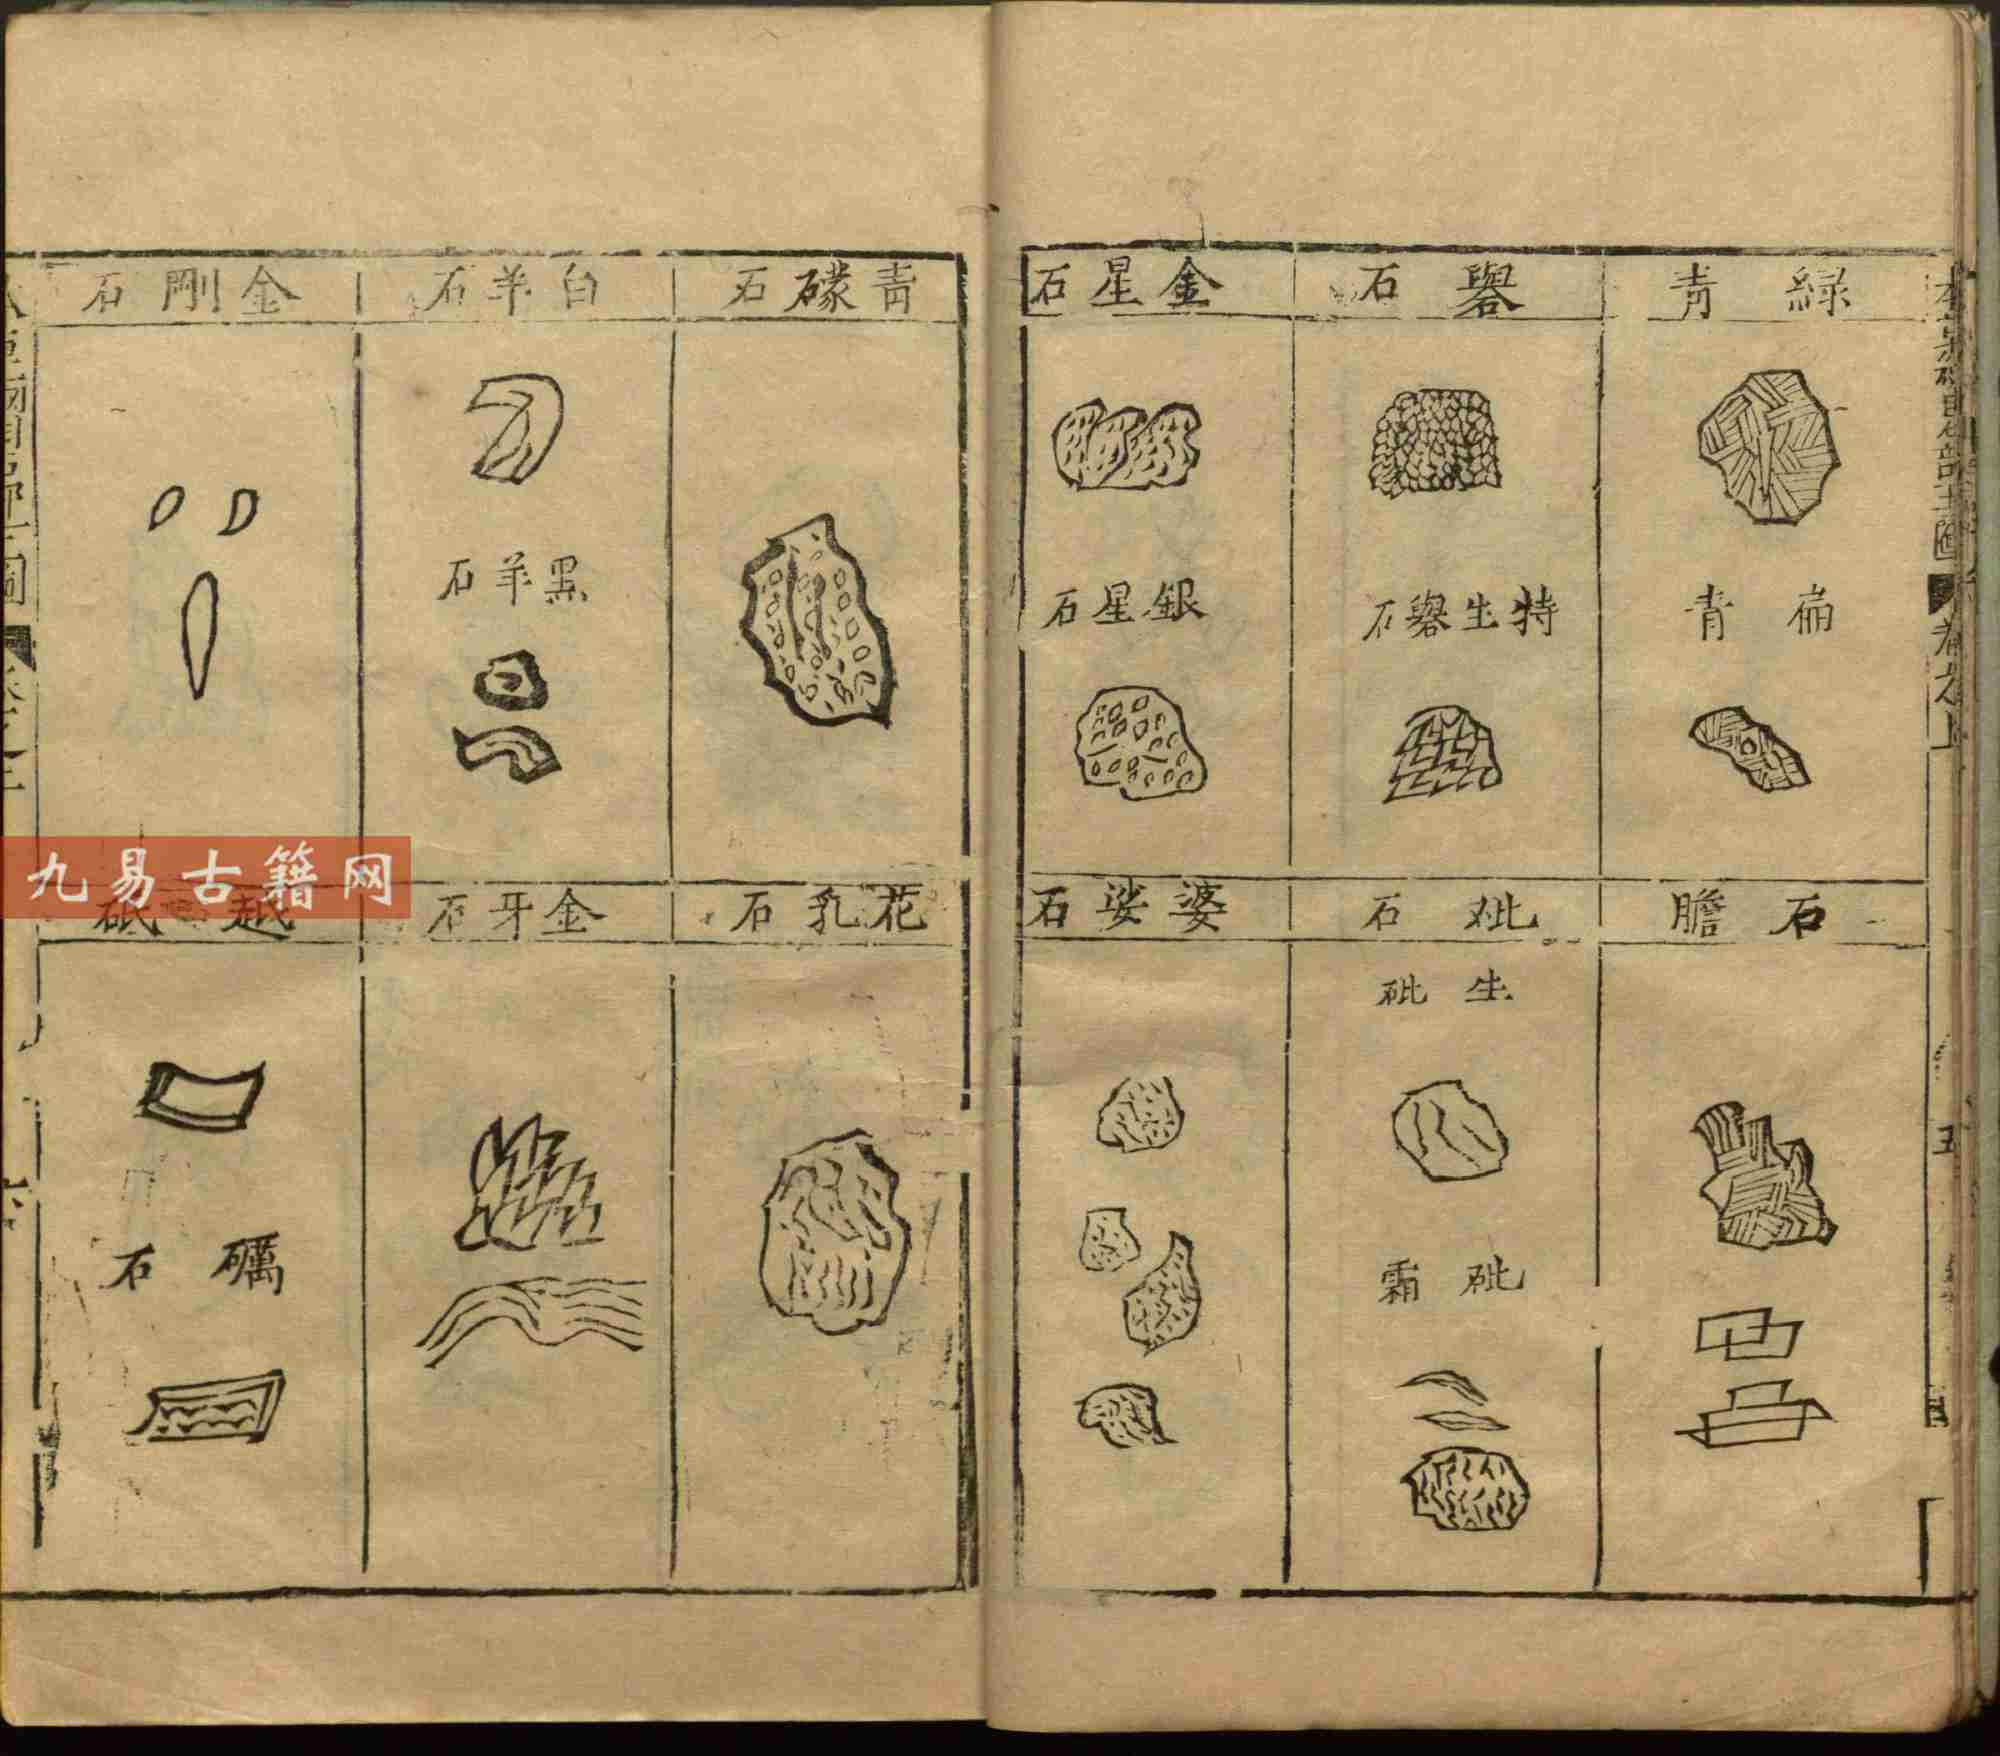 綠青
扁青
礜石
特生礜石
金星石
銀星石
石膽
砒石
生砒
砒霜
婆娑石
五
青礞石
白羊石
黑羊石
金剛石
花乳石
金牙石
越砥
礪石
九易古籍网